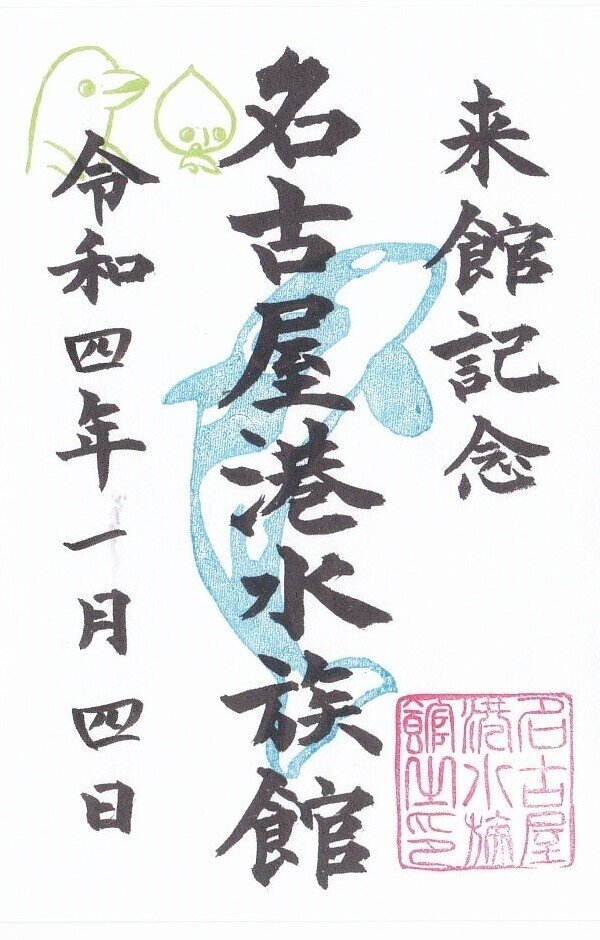 来館記念
名古屋港水族館
令和四年一月四日
名古屋
港水族
館之印